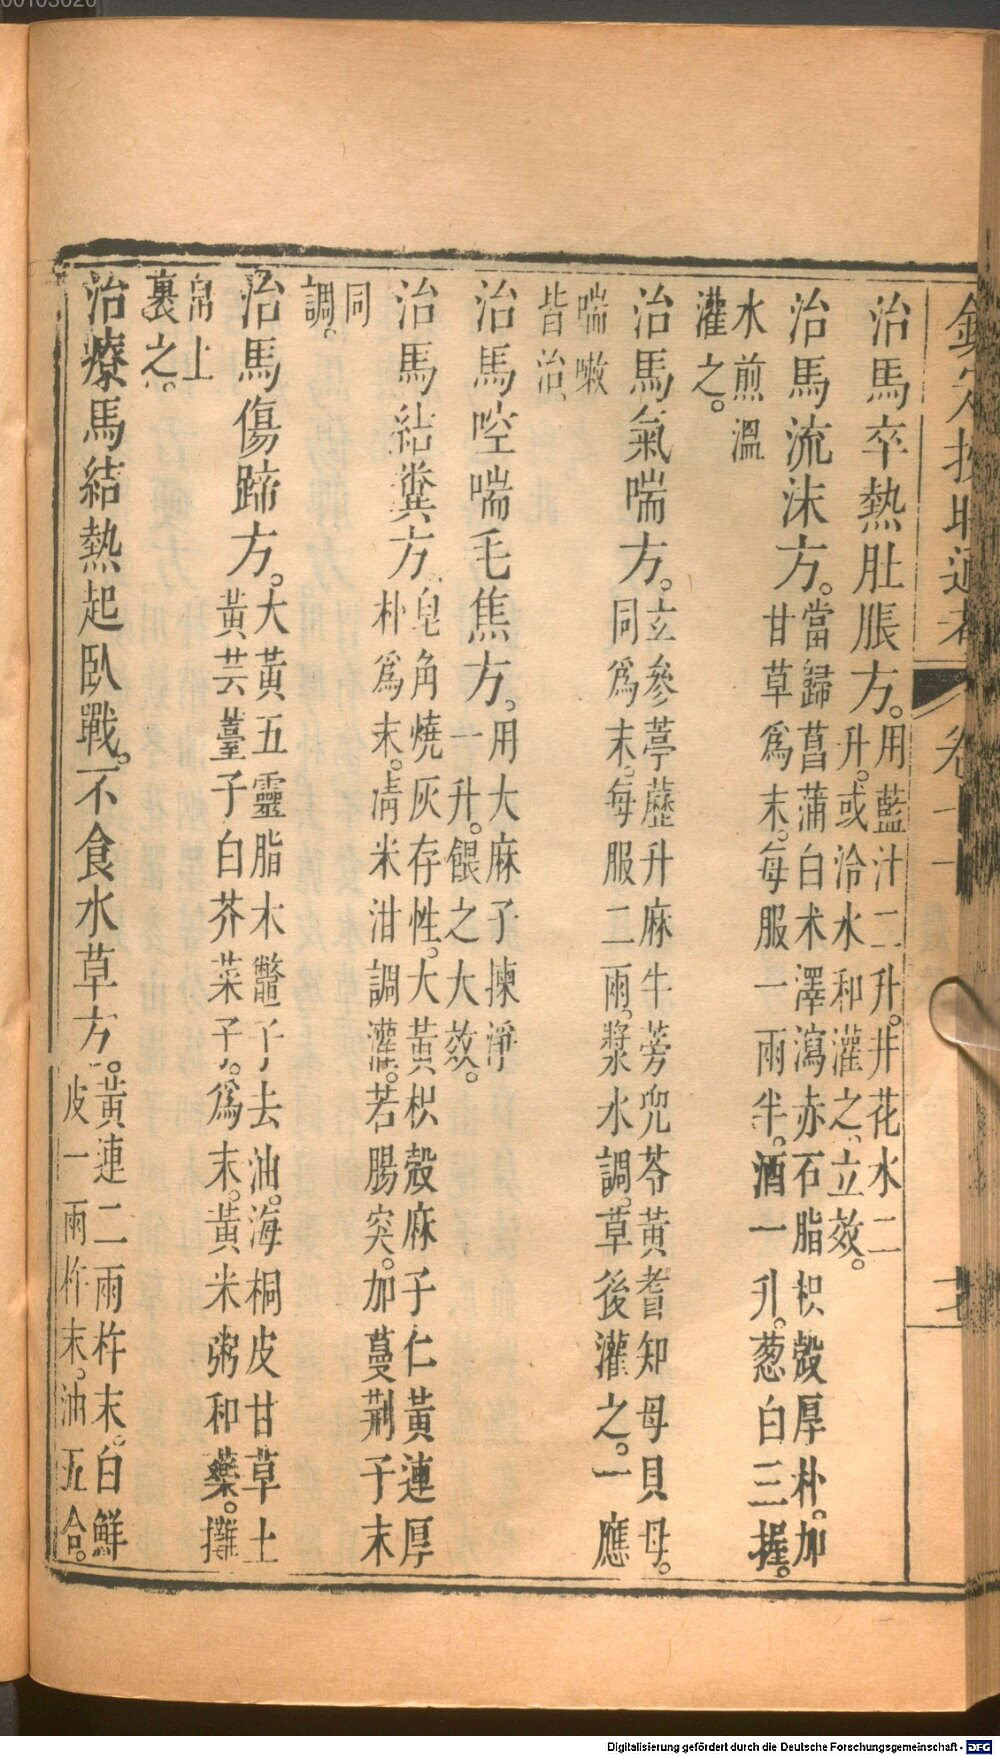 欽定授時通考 卷
治馬卒熱肚脹方。用藍汁二升。井花水二
升。或泠水和灌之。立效。
治馬流沫方。當歸菖蒲白术澤瀉赤石脂枳殼厚朴。加
甘草爲末。每服一兩半。酒一升。葱白三握。
水煎溫
灌之。
治馬氣喘方。玄參葶藶升麻牛蒡兜苓黃耆知母貝母。
同爲末。每服二兩。漿水調。草後灌之。一應
喘嗽
皆治
治馬啌喘毛焦方。用大麻子揀淨
一升。餵之大效。
治馬結糞方。皂角燒灰存性。大黃枳殼麻子仁黃連厚
朴爲末。凊米泔調灌。若腸突。加蔓荆子末
同
調。
治馬傷蹄方。大黃五靈脂木鼈子去油。海桐皮甘草土
黃芸薹子白芥菜子。爲末。黃米粥和藥。攤
帛上
裏之。
治療馬結熱起臥戰。不食水草方。黃連二兩杵末。白鮮
皮一兩杵末。油五合。
Digitalisierung gefördert durch die Deutsche Forschungsgemeinschaft - DFG